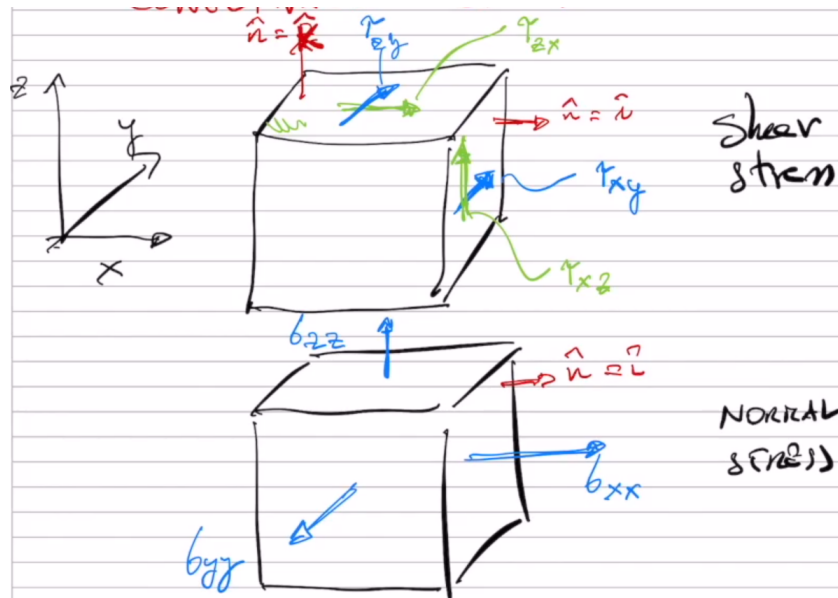 n̂ = k̂
τzy
τzx
z
y
x
n̂ = î
Shear
stress
τxy
τxz
σzz
n̂ = î
NORMAL
STRESS
σxx
σyy